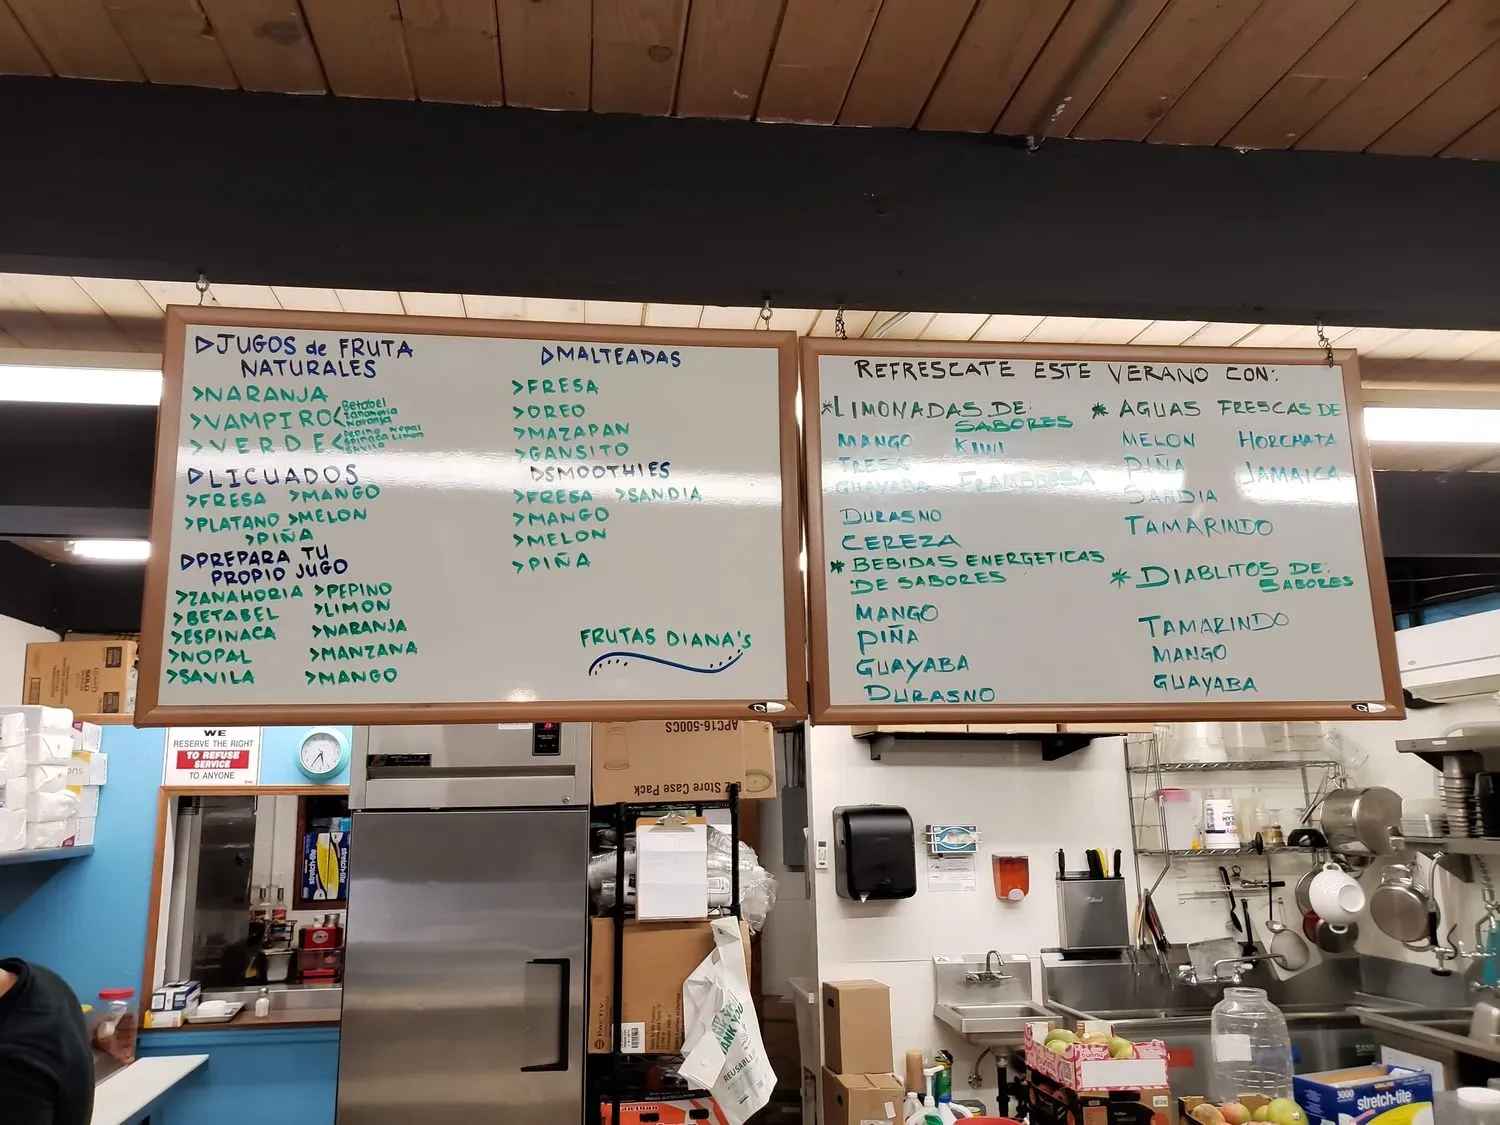 ▷JUGOS de FRUTA
NATURALES
>NARANJA
>VAMPIRO<
Betabel
Zanahoria
Naranja
>VERDE<
Pepino Nopal
Espinaca Limon
Savila
▷LICUADOS
>FRESA >MANGO
>PLATANO >MELON
>PIÑA
▷PREPARA TU
PROPIO JUGO
>ZANAHORIA >PEPINO
>BETABEL >LIMON
>ESPINACA >NARANJA
>NOPAL >MANZANA
>SAVILA >MANGO
▷MALTEADAS
>FRESA
>OREO
>MAZAPAN
>GANSITO
▷SMOOTHIES
>FRESA >SANDIA
>MANGO
>MELON
>PIÑA
FRUTAS DIANA's
REFRESCATE ESTE VERANO CON:
*LIMONADAS DE:
SABORES
MANGO KIWI
FRESA
GUAYABA FRAMBUESA
DURASNO
CEREZA
* BEBIDAS ENERGETICAS
DE SABORES
MANGO
PIÑA
GUAYABA
DURASNO
* AGUAS FRESCAS DE
MELON HORCHATA
PIÑA JAMAICA
SANDIA
TAMARINDO
* DIABLITOS DE:
SABORES
TAMARINDO
MANGO
GUAYABA
WE
RESERVE THE RIGHT
TO REFUSE
SERVICE
TO ANYONE
APC16-500CS
E-Z Store Case Pack
stretch-tite
stretch-tite
THANK YOU
REUSABLE
3000
stretch-tite